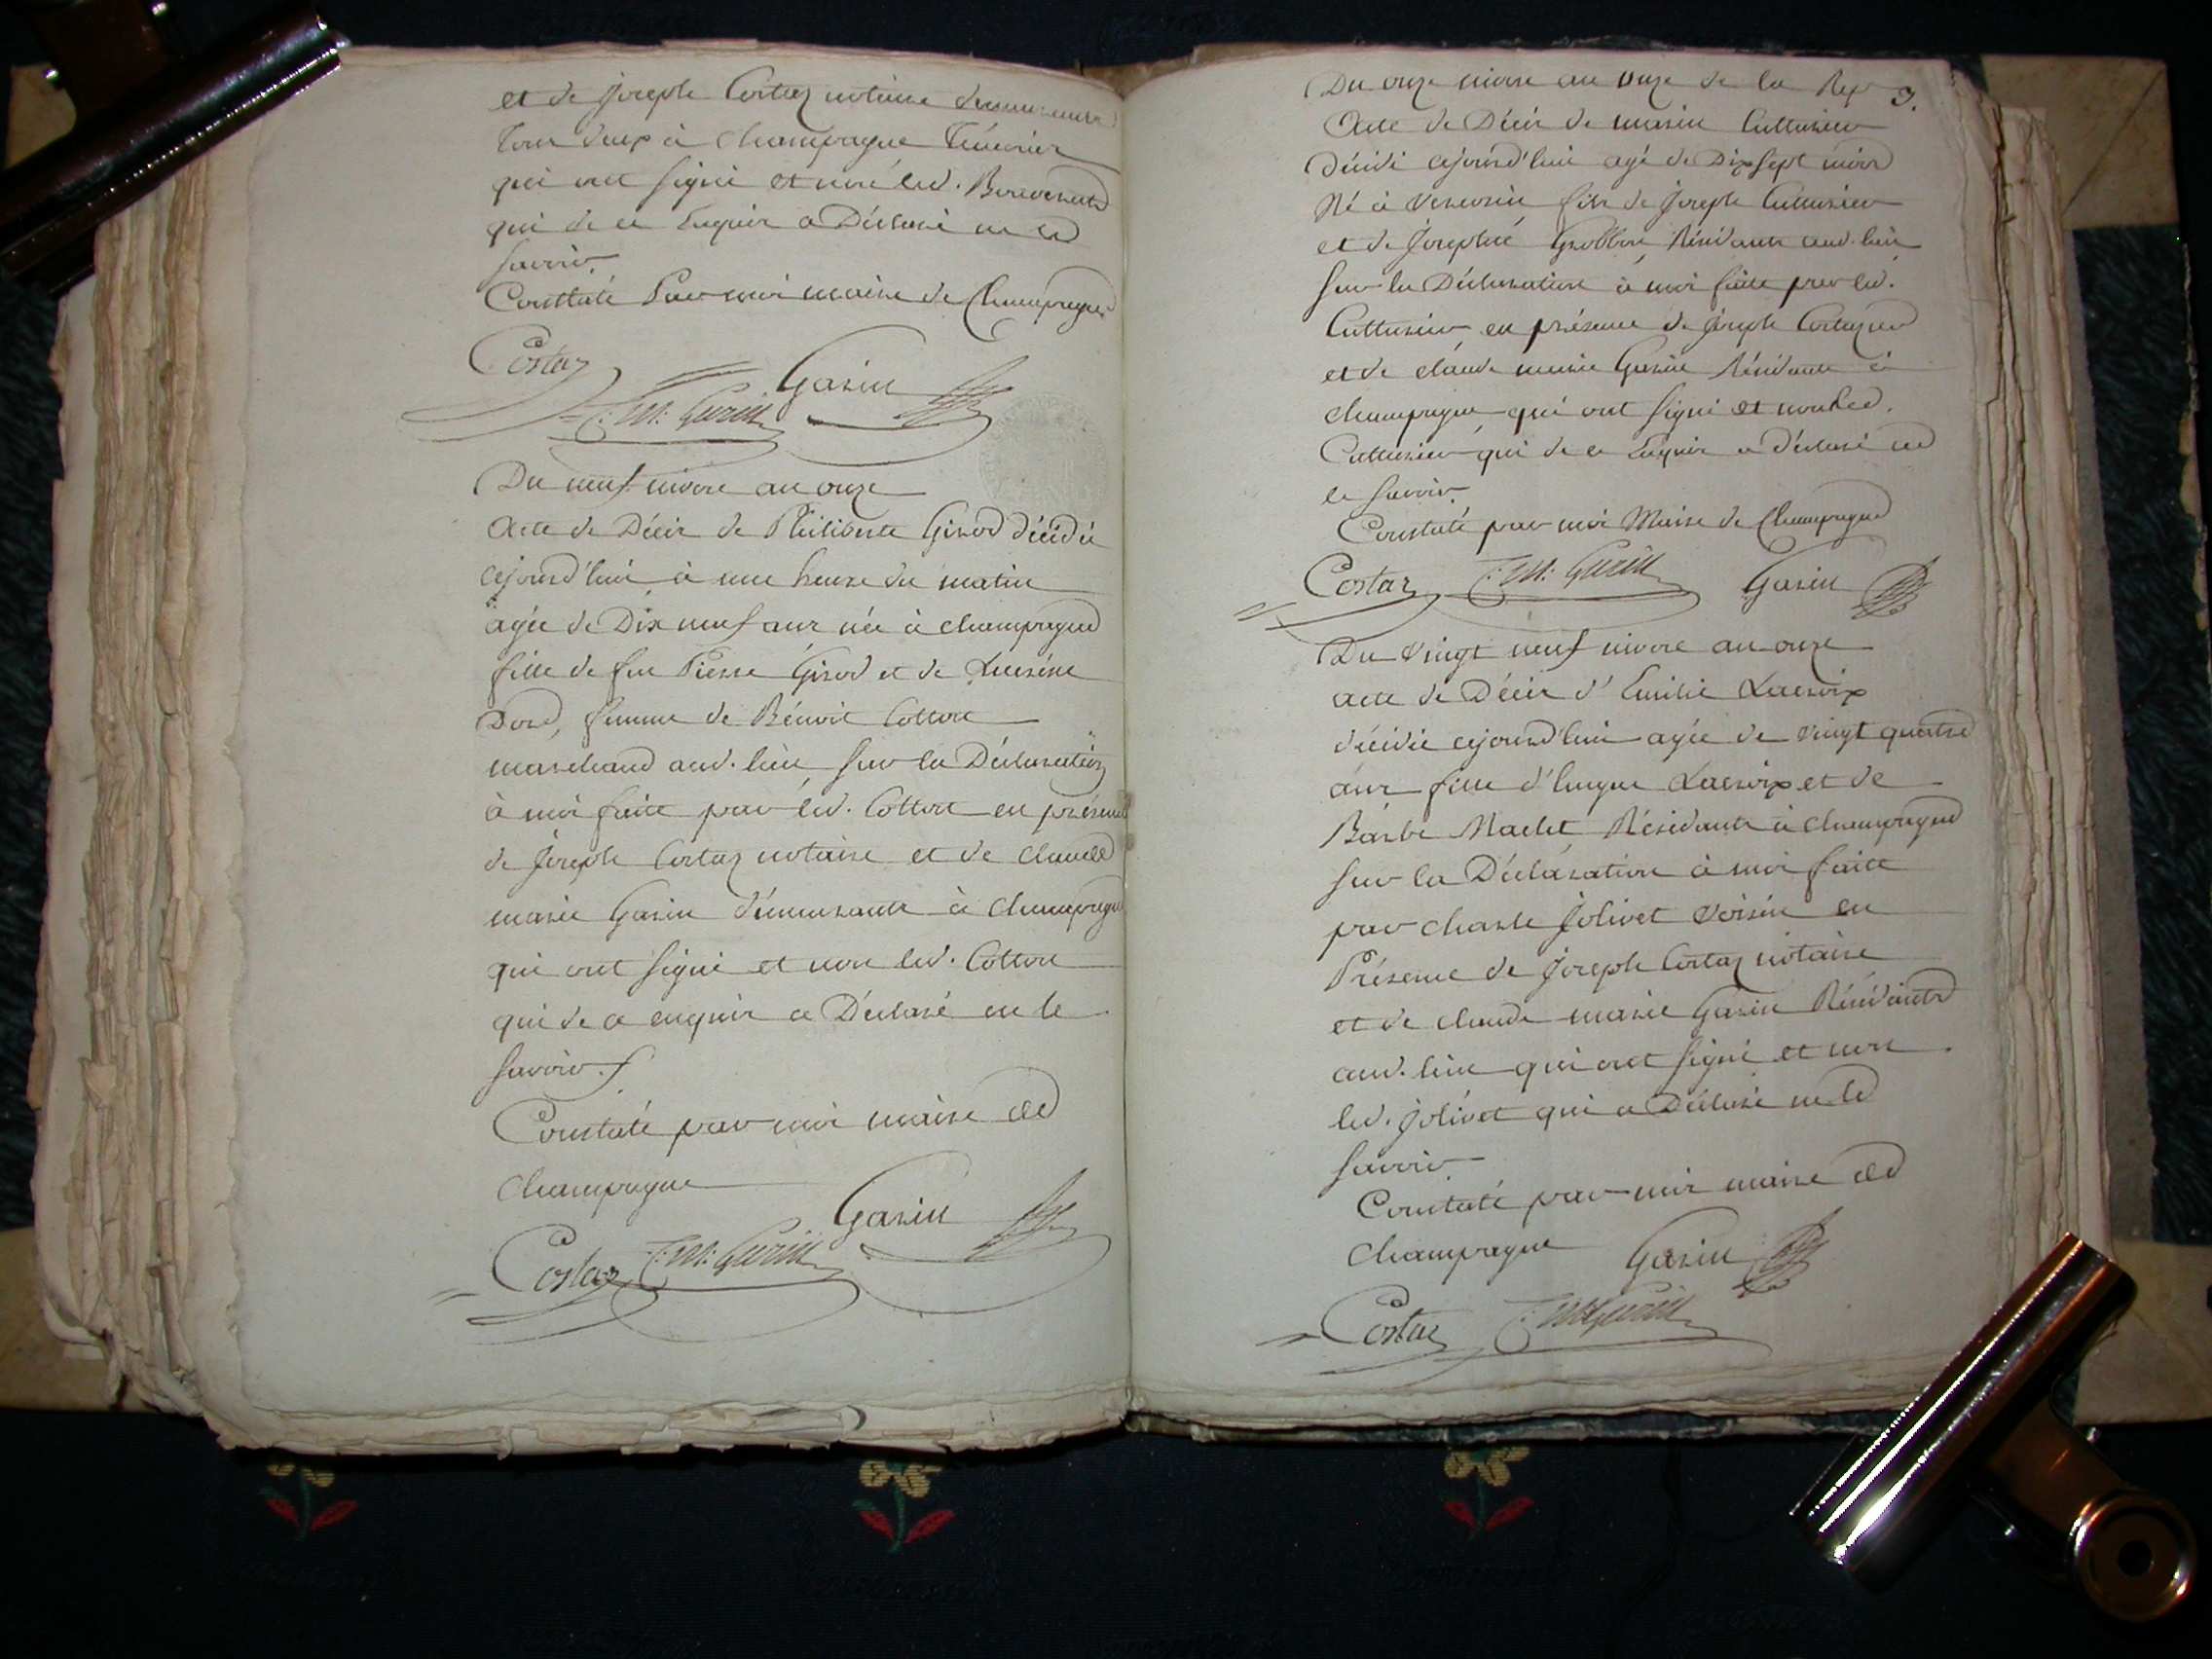 et de Joseph Costaz notaire demeurants
tous deux à Champagne témoins
qui ont signé et non led.
qui de ce enquis a Déclaré ne le
savoir.
Constaté Par moi maire de Champagne
Costaz
C: M: Gurin
Garin
Du neuf nivose an onze
Acte de Décès de Philiberte Girod décédée
cejourd'hui à une heure du matin
agée de Dix neuf ans née à champagne
fille de feu Pierre Girod et de
Dord, femme de Bénoit Cotton
marchand aud. lieu, sur la Déclaration
à moi faite par led. Cotton en présence
de Joseph Costaz notaire et de claude
marie Garin démeurants à champagne
qui ont signé et non led. Cotton
qui de ce enquis a Déclaré ne le
savoir.
Constaté par moi maire de
Champagne
Garin
Costaz C: M: Gurin
3.
Du onze nivose an onze de la Rep
Acte de Décès de marin Cutturier
Décédé cejourd'hui agé de Dix sept mois
Né à fils de Joseph Cutturier
et de Résidants aud. lieu
sur la Déclaration à moi faite par led.
Cutturier en présence de Joseph Costaz
et de claude marie Garin Résidants à
champagne qui ont signé et non led.
Cutturier qui de ce enquis a déclaré ne
le savoir.
Constaté par moi Maire de Champagne
Costaz C: M: Gurin Garin
Du vingt neuf nivose an onze
acte de Décès d'Emilie Lacroix
décédée cejourd'hui agée de vingt quatre
ans fille d'hugue Lacroix et de
Barbe Maclet Résidants à champagne
sur la Déclaration à moi faite
par charle Jolivet voisin en
Présence de Joseph Costaz notaire
et de claude marie Garin Résidants
aud. lieu qui ont signé et non
led. jolivet qui a Déclaré ne le
savoir.
Constaté par moi maire de
Champagne Garin
Costaz C: M: Gurin